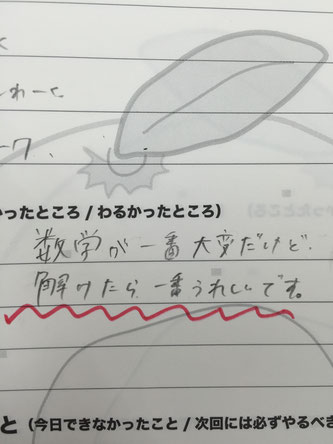 われーと
ーク、
かったところ / わるかったところ）
数学が一番大変だけど、
解けたら一番うれしいです。
と（今日できなかったこと / 次回には必ずやるべき